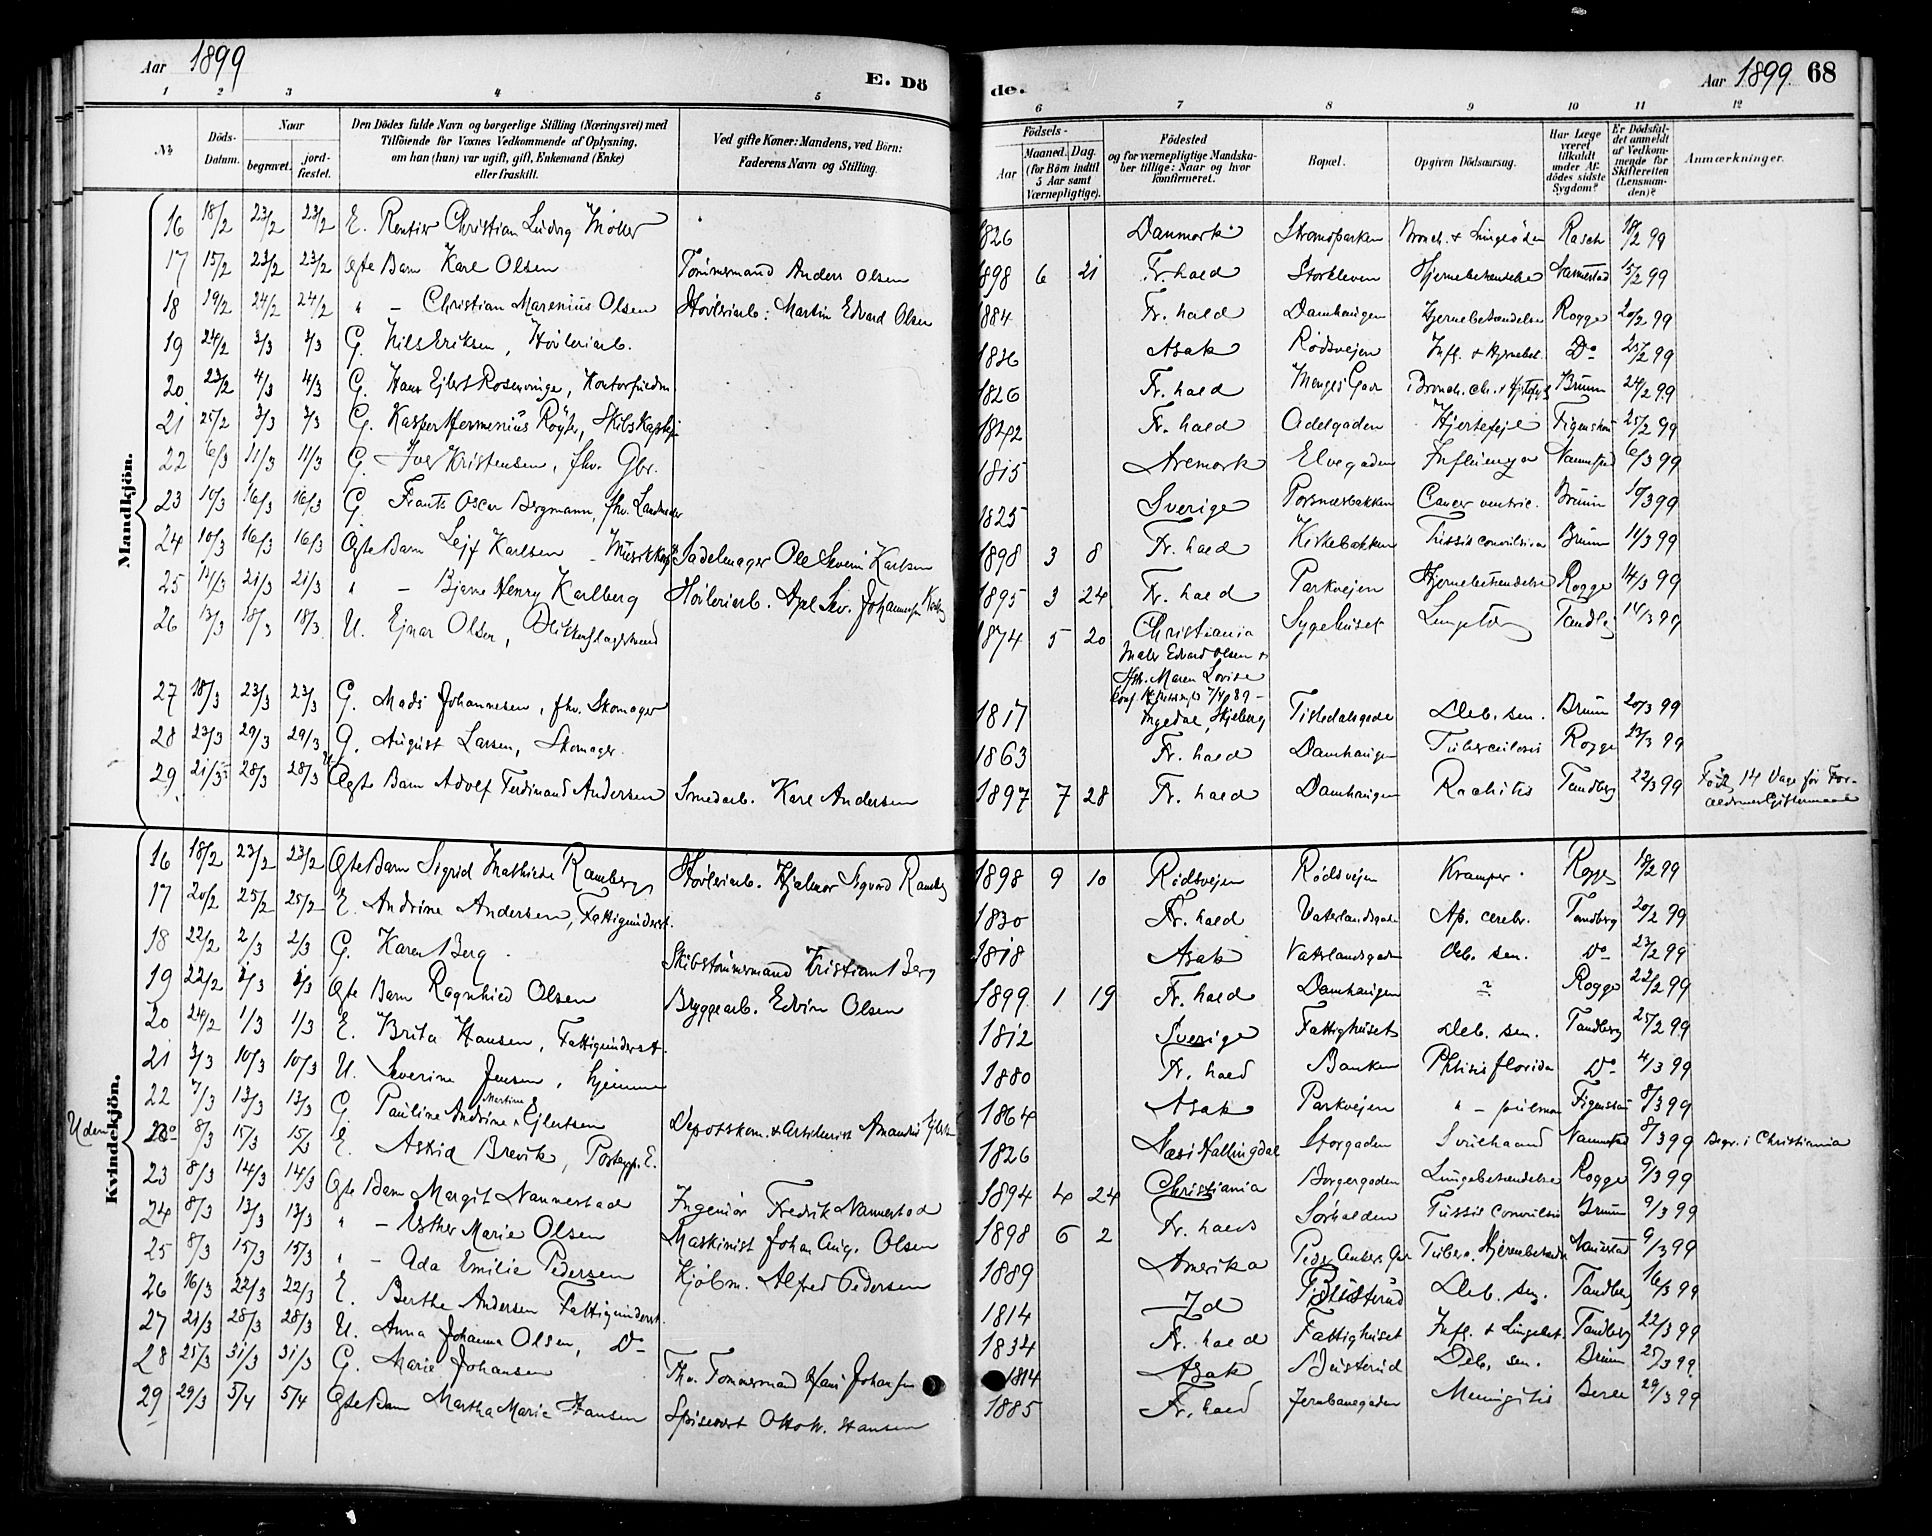 Aar 1899
E. Dö
de.
Aar 1899 68
1 2 3 4 5 6 7 8 9 10 11 12
№ Döds-Datum. Naar begravet. jord-fæstet. Den Dödes fulde Navn og borgerlige Stilling (Næringsvei) med Tilföiende for Voxnes Vedkommende af Oplysning, om han (hun) var ugift, gift, Enkemand (Enke) eller fraskilt. Ved gifte Koner: Mandens, ved Börn: Faderens Navn og Stilling. Födsels- Aar Maaned. Dag. (for Börn indtil 5 Aar samt Værnepligtige). Födested og for værnepligtige Mandskaber tillige: Naar og hvor konfirmeret. Bopæl. Opgiven Dödsaarsag. Har Læge været tilkaldt under Afdödes sidste Sygdom? Er Dödsfaldet anmeldt af Vedkommende for Skifteretten (Lensmanden)? Anmærkninger.
Mandkjön.
16 18/2 23/2 23/2 E. Rentier Christian Ludvig Møller 1826 Danmark Strandparken Bronch. & Lungeödem Rasch 18/2 99
17 15/2 23/2 23/2 Ægte Barn Karl Olsen Tömmermand Anders Olsen 1898 6 21 Fr. hald Storkleven Hjernebetændelse Nannestad 15/2 99
18 19/2 24/2 24/2 " – Christian Marenius Olsen Høvleriarb: Martin Edvard Olsen 1884 Fr. hald Damhaugen Hjernebetændelse Rogge 20/2 99
19 24/2 3/3 3/3 G. Nils Eriksen, Høvleriarb. 1836 Asak Rødsvejen Infl. & Hjernebet. Do 25/2 99
20 23/2 4/3 4/3 G. Hans Ejlert Rosenvinge, Kontorfuldm. 1826 Fr. hald Menges Gaar Bronch. chr. & Bruun 24/2 99
21 25/2 3/3 3/3 G. Kasper Hermenius Röyer, Skibskaptejn 1842 Fr. hald Adelgaden Hjertefejl Figenschou 25/2 99
22 6/3 11/3 11/3 G. Iver Kristensen, fhv. Gbr. 1815 Aremark Elvegaden Influenza Nannestad 6/3 99
23 10/3 16/3 16/3 G. Frants Oscar Bergmann, fhv. 1825 Sverige Porsnesbakken Cancer ventric. Bruun 10/3 99
24 10/3 16/3 16/3 Ægte Barn Lejf Karlsen Sadelmager Ole Severin Karlsen 1898 3 8 Fr. hald Kirkebakken Tussis convulsiva Bruun 11/3 99
25 14/3 21/3 21/3 " – Bjarne Henry Karlberg Høvleriarb. Axel Sev. Johannesen 1895 3 24 Fr. hald Parkvejen Hjernebetændelse Rogge 14/3 99
26 13/3 18/3 18/3 U. Ejnar Olsen, Blikkenslagersvend 1874 5 20 Christiania Sygehuset Tandberg 14/3 99
Maler Edvard Olsen &
Hst. Maren Lovise
27 18/3 23/3 23/3 G. Mads Johannesen, fhv. Skomager 1817 Ingedal, Skjeberg Tistedalsgade Deb. sen. Bruun 20/3 99
28 23/3 29/3 29/3 G. August Larsen, Skomager. 1863 Fr. hald Damhaugen Tuberculosis Rogge 23/3 99
29 21/3 28/3 28/3 Ægte Barn Adolf Ferdinand Andersen Smedarb. Karl Andersen 1897 7 28 Fr. hald Damhaugen Rachitis Tandberg 22/3 99 Født 14 Dage før For-
ældrenes Giftermaal
Kvindekjön.
16 18/2 23/2 23/2 Ægte Barn Sigrid Mathilde Ramberg Høvleriarb. Hjalmar Sigvard Ramberg 1898 9 10 Rødsvejen Rødsvejen Kramper. Rogge 18/2 99
17 20/2 25/2 25/2 E. Andrine Andersen, Fattigunderst. 1830 Fr. hald Vaterlandsgaden Ap. cerebr. Tandberg 20/2 99
18 22/2 2/3 2/3 G. Karen Berg Skibstömmermand Kristian Berg 1818 Asak Vaterlandsgaden Deb. sen. Do 23/2 99
19 22/2 Ægte Barn Ragnhild Olsen Bryggearb. Edvin Olsen 1899 1 19 Fr. hald Damhaugen ? Rogge 22/2 99
20 24/2 1/3 1/3 E. Brita Hansen, Fattigunderst. 1812 Sverige Fattighuset Deb. sen. Tandberg 25/2 99
21 3/3 10/3 10/3 U. Severine Jensen, hjemme 1880 Fr. hald Banken Phtisis florida Do 4/3 99
22 7/3 13/3 13/3 G Pauline Andrine Martine Ejlertsen Depotskom. & Amandus Ejlertsen 1864 Asak Parkvejen " – pulmon Figenschou 8/3 99
Uden No 8/3 15/3 15/3 E. Astrid Brevik, Postexp. E. 1826 Næs i Hallingdal Storgaden Nannestad 8/3 99 Begr. i Christiania
23 8/3 14/3 14/3 Ægte Barn Margit Nannestad Ingeniør Fredrik Nannestad 1894 4 24 Christiania Borgergaden Lungebetændelse Rogge 9/3 99
24 8/3 13/3 13/3 " – Esther Marie Olsen Maskinist Johan Aug. Olsen 1898 6 2 Fr. hald Sørhalden Tussis convulsiv Bruun 9/3 99
25 8/3 15/3 15/3 " – Ada Emilie Pedersen Kjøbm. Alfred Pedersen 1889 Amerika Tuberc. Hjernebetænd. Nannestad 9/3 99
26 16/3 22/3 22/3 E. Berthe Andersen Fattigunderst. 1814 Id Deb. sen. Tandberg 16/3 99
27 21/3 28/3 28/3 U. Anna Johanna Olsen, Do 1834 Fr. hald Fattighuset Infl. & Lungebet. Tandberg 22/3 99
28 25/3 31/3 31/3 G. Marie Johansen Fhv. Tömmermand Johansen 1814 Asak Busterud Deb. sen. Bruun 25/3 99
29 29/3 5/4 5/4 Ægte Barn Martha Marie Hansen Spisevert Otto Hansen 1885 Fr. hald Jernbanegaden Meningitis 29/3 99